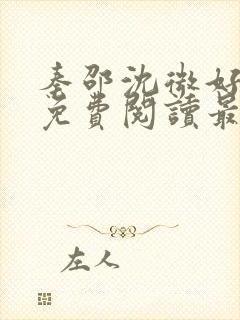 秦邵沈微好
免費閱讀最
左人